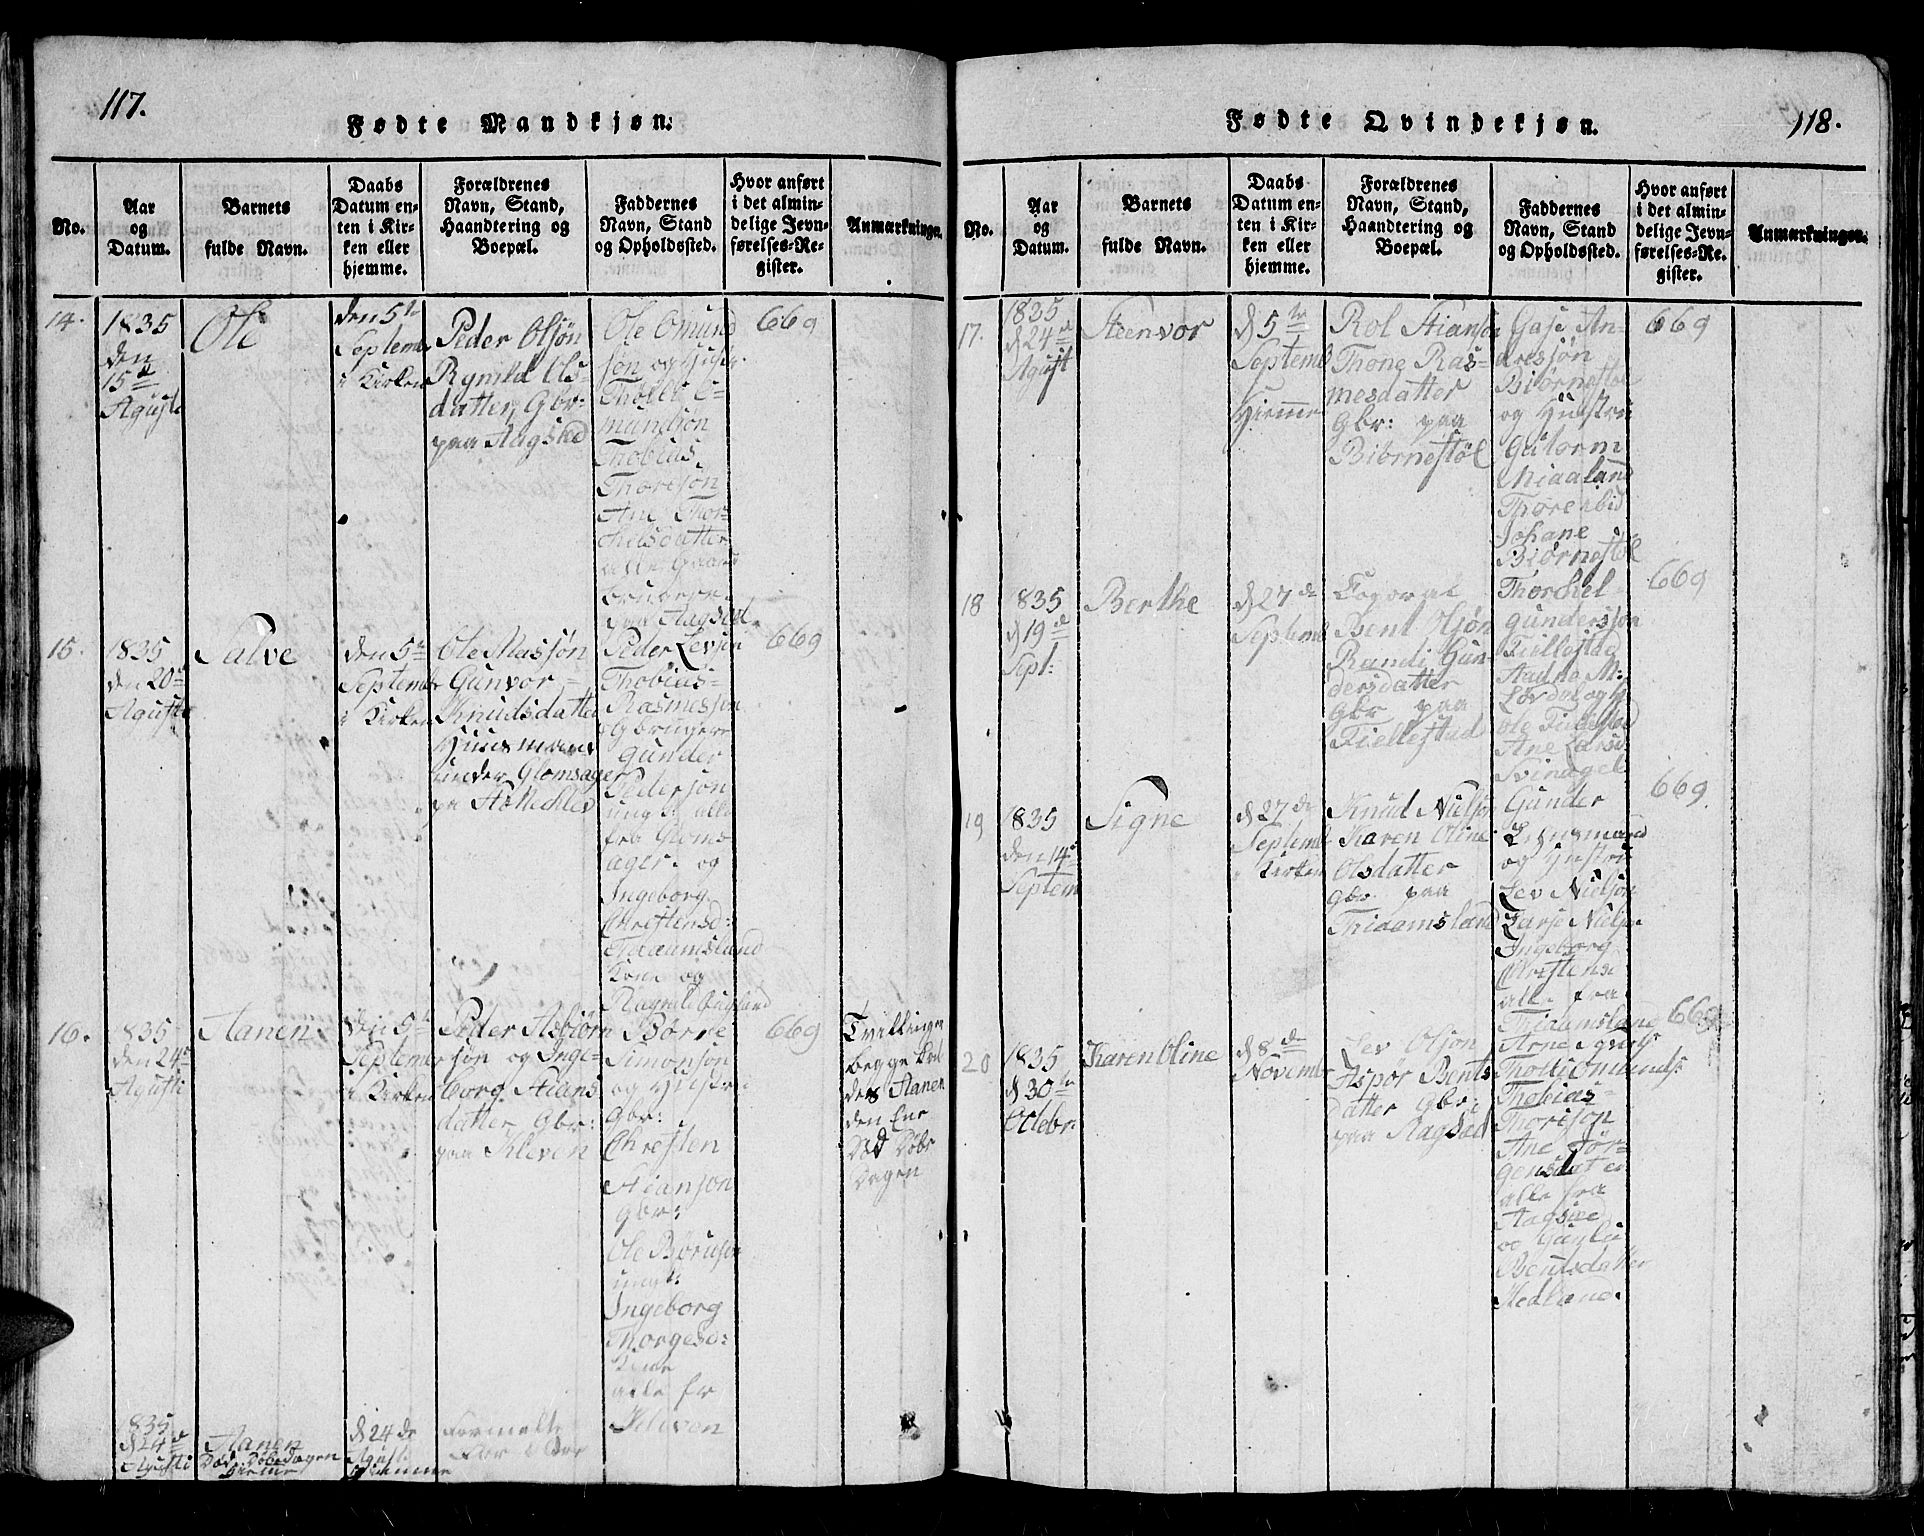 117.
Fødte Mandkjøn.
No.
Aar
og
Datum.
Barnets
fulde Navn.
Daabs
Datum en-
ten i Kir-
ken eller
hjemme.
Forældrenes
Navn, Stand,
Haandtering og
Boepæl.
Faddernes
Navn, Stand
og Opholdssted.
Hvor anført
i det almin-
delige Jevn-
førelses-Re-
gister.
Anmærkninger.
14.
1835
den
15de
Agusti
Ole
den 5te
Septembr
i Kirken
Peder Olsøn
Rynild Ols-
datter, Gbr:
paa Aagsted
Ole Omund
søn og Hustr.
Tholle O-
mundsøn
Thobias
Thoresøn
Ane Thor-
kelsdatter
alle Gaard
brugere
paa Aagsted
669
15.
1835
den 20de
Agusti
Salve
den 5te
Septembr
i Kirken
Ole Aassøn
Gunvor
Knudsdatter
Huusmand
under Glomsager
Peder Levsen
Thobias
Rasmesøn
Gbrugere
Gunder
Pedersøn
ungk: alle
fra Gloms
ager. og
Ingeborg
Christensd:
Tiaamsland
Kone og
669
16.
1835
den 24de
Agusti
Aanen
den 5te
Septembr
i Kirken
Peder Asbiørn
søn og Inge-
borg Stians
datter Gbr:
paa Kleven
Børre
Simonsøn
og Hustr:
Gbr:
Christen
Stiansøn
Gbr:
Ole Børresøn
ungk:
Ingeborg
Thorgesd:
Kone
alle fr
Kleven
669
Tvillinger
begge kal
des Aanen
den Ene
Død Døbe
Dagen
1835
d 24de
Agusti
Aanen
Død Døbedagen
Hieme
d 24de
Agusti
Hiemme
Formelte
Forældre
118.
Fødte Qvindekjøn.
No.
Aar
og
Datum.
Barnets
fulde Navn.
Daabs
Datum en-
ten i Kir-
ken eller
hjemme.
Forældrenes
Navn, Stand,
Haandtering og
Boepæl.
Faddernes
Navn, Stand
og Opholdssted.
Hvor anført
i det almin-
delige Jevn-
førelses-Re-
gister.
Anmærkninger.
17.
1835
d 24de
Agust
Steenvor
d 5te
Septembr
Hiemme
Rol Stiansøn
Thone Ras-
mesdatter
Gbr: paa
Biørnestøl
Gase An-
dresøn
Biørnestøl
og Hustru
Gutorm
Miaaland
Thore ibid
Johane
Biørnestøl
669
18
1835
d 19de
Sept:
Berthe
d 27de
Septembr
Coporal
Bent Olsøn
Randi Gun-
dersdatter
Gbr paa
Fiellestad
Thorckel
Gundersøn
Fiellestad
Aanne M:
Lørdal og H
Ole Fiellestad
Ane Larsd
Svindgel
669
19
1835
den 14de
Septem
Signe
d 27de
Septembr
i Kirken
Knud Nielsøn
Karen Oline
Olsdatter
Gbr. paa
Thiaamsland
Gunder
og Hustru
Lev Nielsøn
Tarje Nielsøn
Ingeborg
Christensd
alle fra
Thiaamsland
669
20
1835
d 30te
Octobr.
Karen Oline
d 8de
Novembr
Lev Olsøn
Aspor Bents
datter Gbr:
paa Aagsted
Arne Sivers
Tholle Omunds:
Thobias
Thorisøn
Ane Jør-
gensdatter
alle fra
Aagsted
og Gunla
Bentsdatter
Hedland.
669